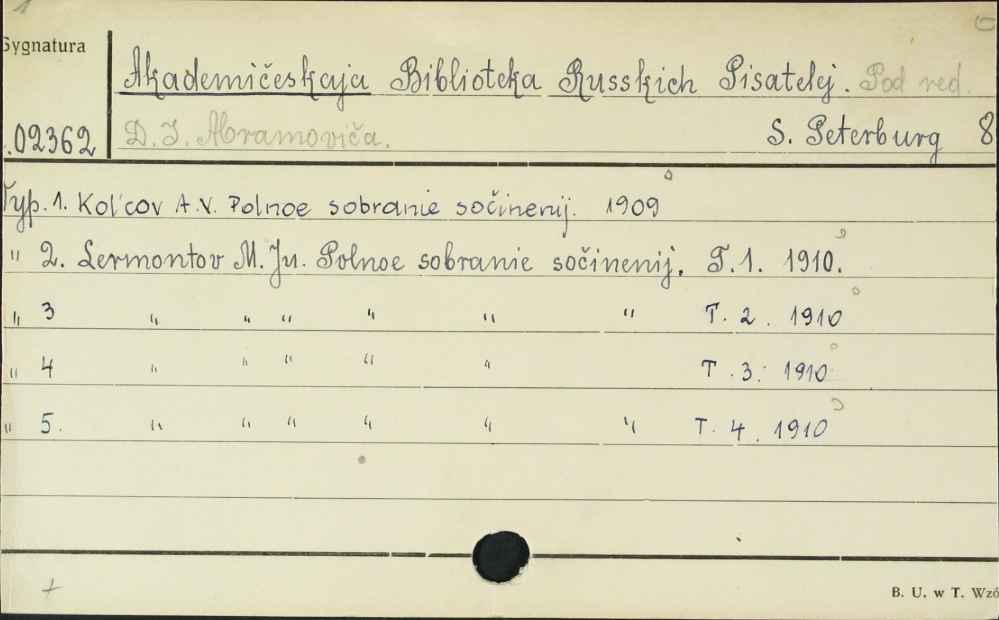 1
Sygnatura
Akademičeskaja Biblioteka Russkich Pisatelej. Pod red.
.02362 D. I. Abramoviča. S. Peterburg 8
Vyp. 1. Kol'cov A. V. Polnoe sobranie sočinenij. 1909
" 2. Lermontov M. Ju. Polnoe sobranie sočinenij. T. 1. 1910.
" 3 " " " " " " T. 2. 1910
" 4 " " " " " T. 3. 1910
" 5. " " " " " " T. 4. 1910
+
B. U. w T. Wzó